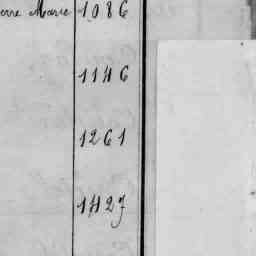 erre Marie 1086
1146
1261
1427